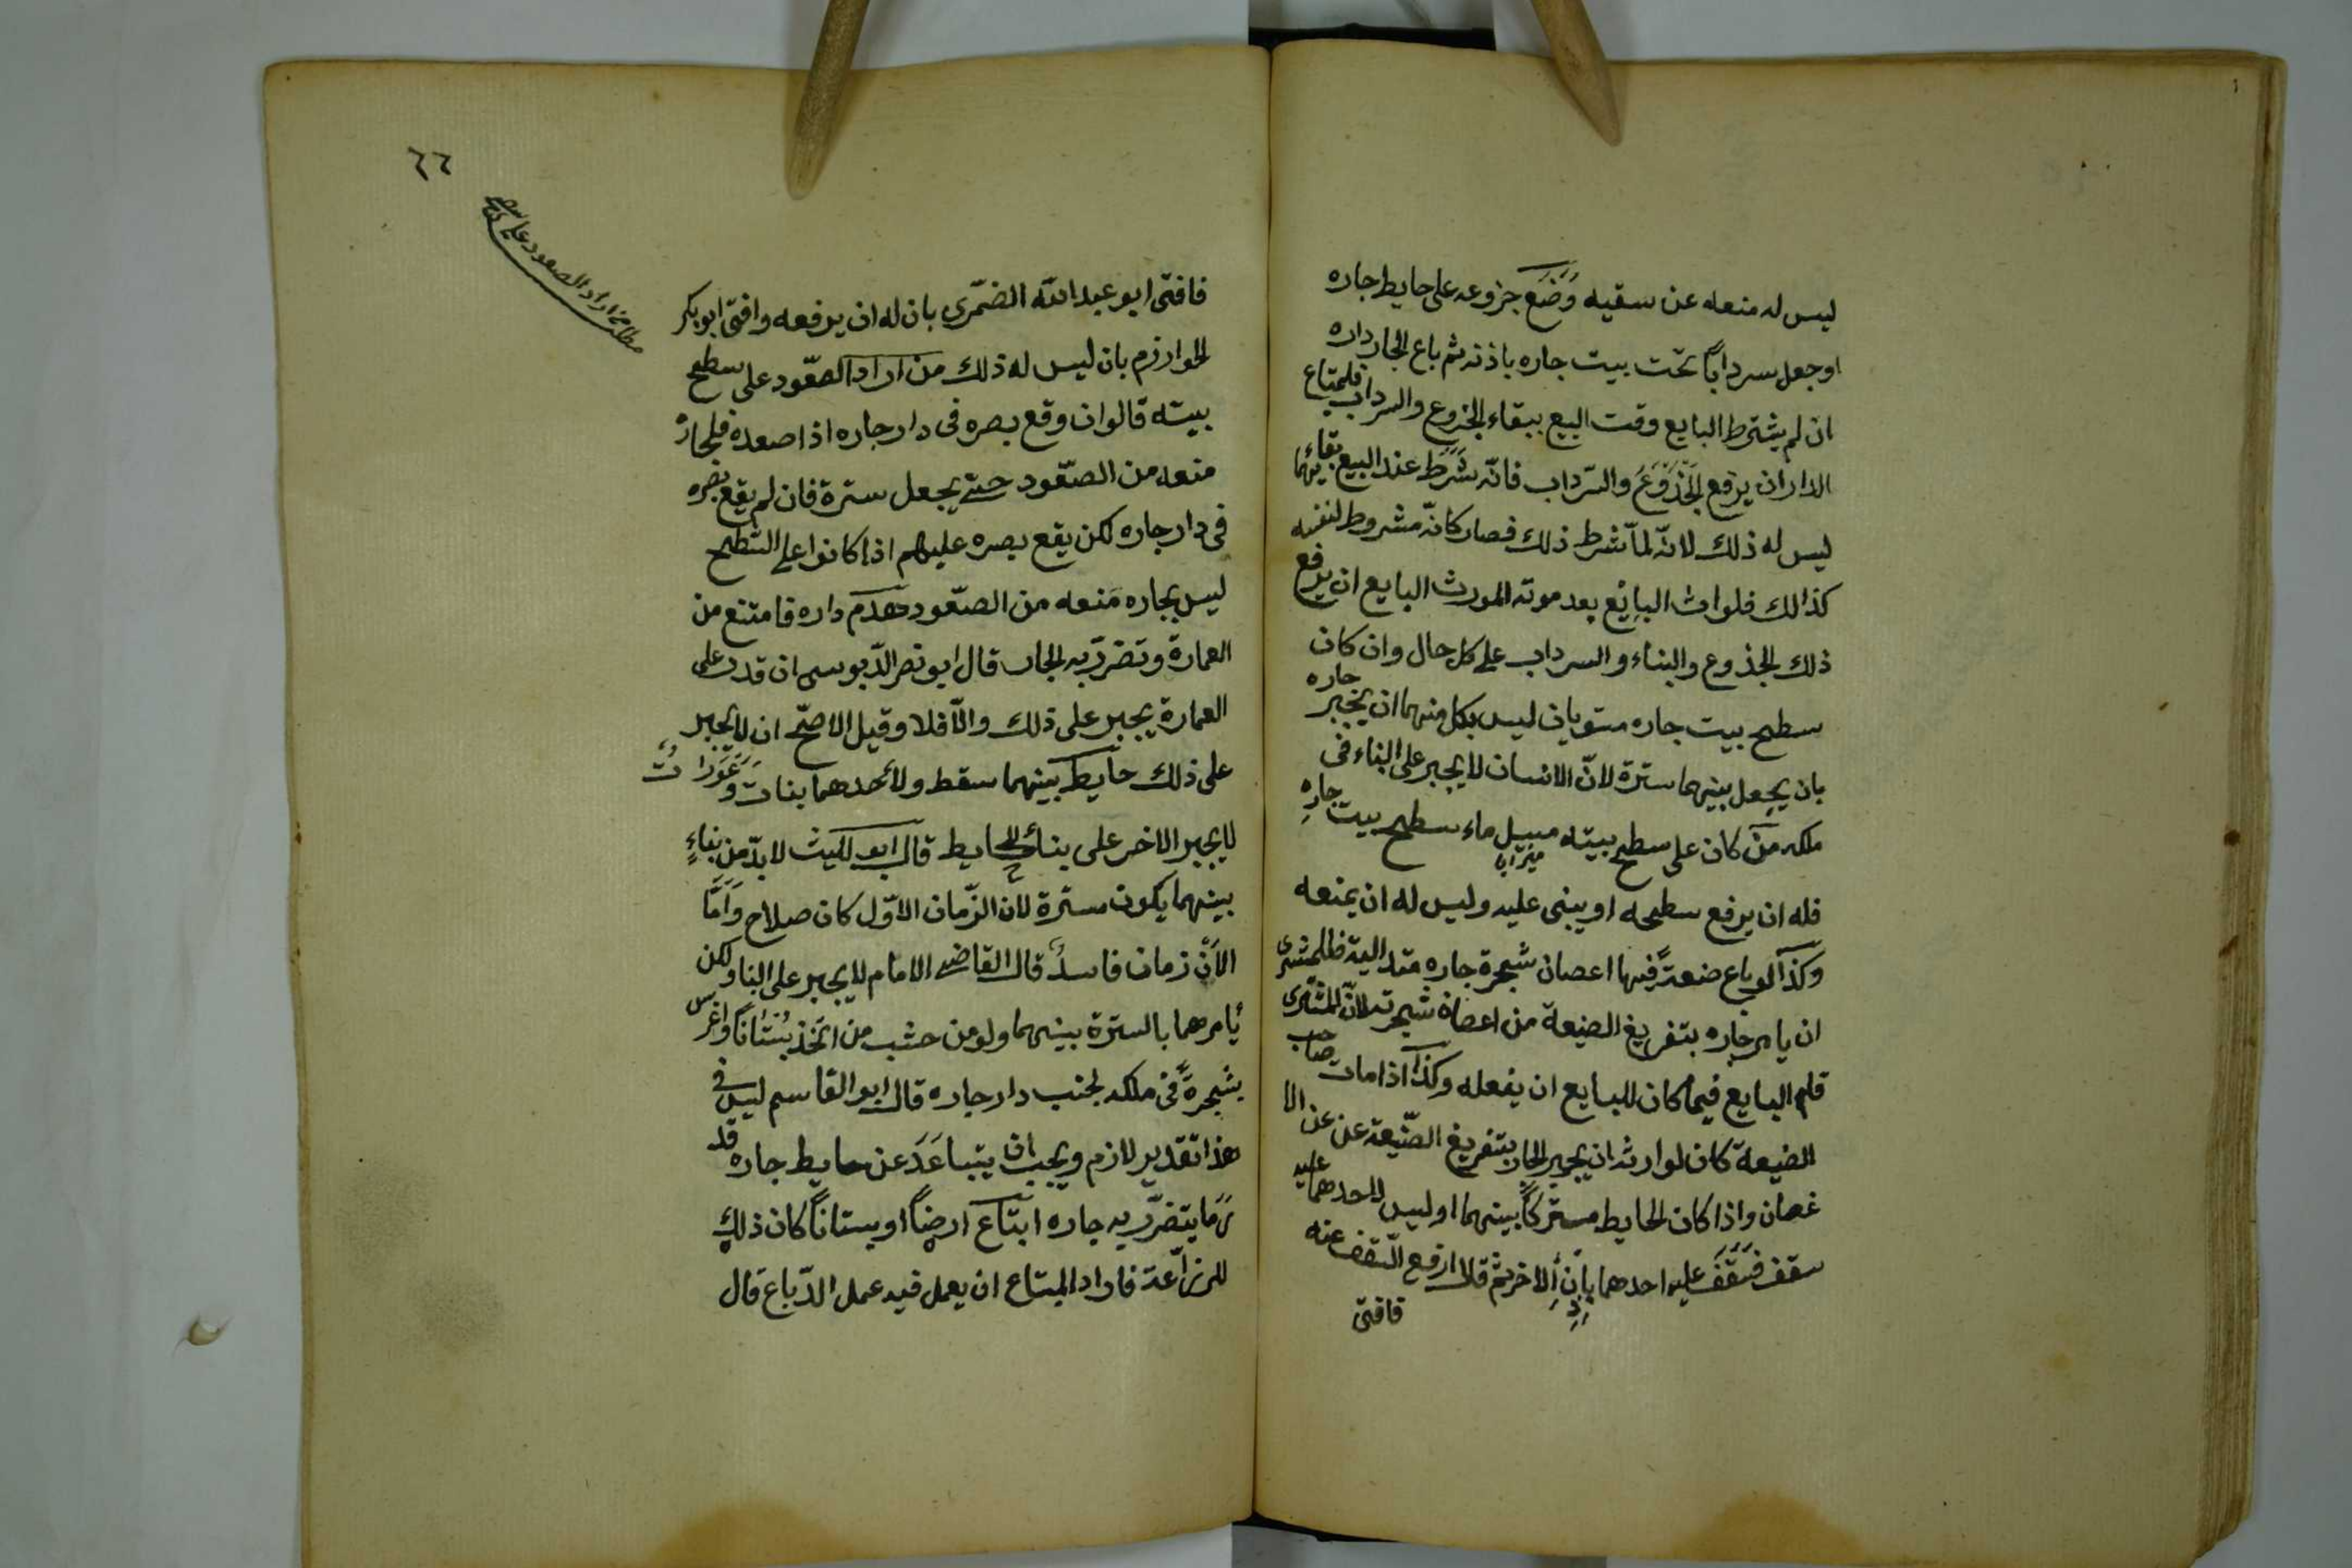 ليس له منعه عن سقيه وَضَعَ جزوعه على حايط جاره
او جعل سرداباً تحت بيت جاره باذنه ثم باع الجار داره
ان لم يشترط البايع وقت البيع ببقاء الجزوع والسرداب فلمبتاع
الدار ان يرفع الجَذوَعَ والسّرداب فانّه شَرَطَ عند البيع بقائهما
ليس له ذلك لانّه لمّا شرط ذلك فصار كانّه مشروط لنفسه
كذالك فلوارث البائع بعد موته المورث البايع ان يرفع
ذلك الجذوع والبناء والسرداب على كل حال وان كان
سطح بيت جاره مستويان ليس بكل منهما ان يجبر جاره
بان يجعل بينهما سترة لانّ الانسان لا يجبر على البناء فى
ملكه منَ كان على سطح بيته مسيل ماء سطح بيت جارِهِ
ميزابا
فله ان يرفع سطحه او يبنى عليه وليس له ان يمنعه
وكذآ لو باع ضعةً فيها اعصان شجرة جاره متدالية فللمشرى
ان يامر جاره بتفريغ الضيعة من اعضان شجرته لانّ المشترى
قام البايع فيما كان للبايع ان يفعله وكذآ اذا مات صاحب
الضيعة كان لوارثه ان يجبر الجار بتفريغ الضّيعة عن عن الا
غصان واذا كان الحايط مشتركاً بينهما او ليس لاحدهما عليه
سقف فسَقَّفَ عليه احدهما باِذِنِ الاخر ثم قال ارفع السّقف عنه
فافتى
٦٦
مطلب من اراد الصعود على سطح بيته
فافتى ابو عبد الله الضمّرى بان له ان يرفعه وافتى ابو بكر
الخوارزم بان ليس له ذلك من اراد الصّعود على سطح
بيته قالوا ان وقع بصره فى دار جاره اذا صعده فلجاره
منعه من الصّعود حتى يجعل سترة فان لم يقع بصره
فى دار جاره لكن يقع بصره عليهم اذا كانوا على السّطح
ليس بجاره مَنعه من الصّعود هَدَم داره فامتنع من
العمارة وتضرّر به الجار قال ابو نصر الدّبوسى ان قدر على
العمارة يجبر على ذلك والّا فلا وقيل الاصّح ان لا يجبر
على ذلك حايط بينهما سقط ولاحدهما بنات وَعَوَراتُ
لا يجبر الاخر على بناء الحايط قال ابو الليث لا بدّ من بناءٍ
بينهما يكون سترة لان الزّمان الاوّل كان صلاح وَاَمَّا
الآنَ زمان فاسدٌ قال القاضى الامام لا يجبر على البناء ولكن
يأمرهما بالسترة بينهما ولو من حشب من اتخذ بُستاناً واغرس
شجرةً فى ملكه لجنب دار جاره قال ابو القاسم ليس فى
هذا تقدير لازم ويجب ان يتباعَدَ عن حايط جاره قد
رَمَا يتضرّر به جاره ابتاع ارضاً او بستاناً كان ذلك
للزرّاعة فاراد المبتاع ان يعمل فيه عمل الدّباغ قال